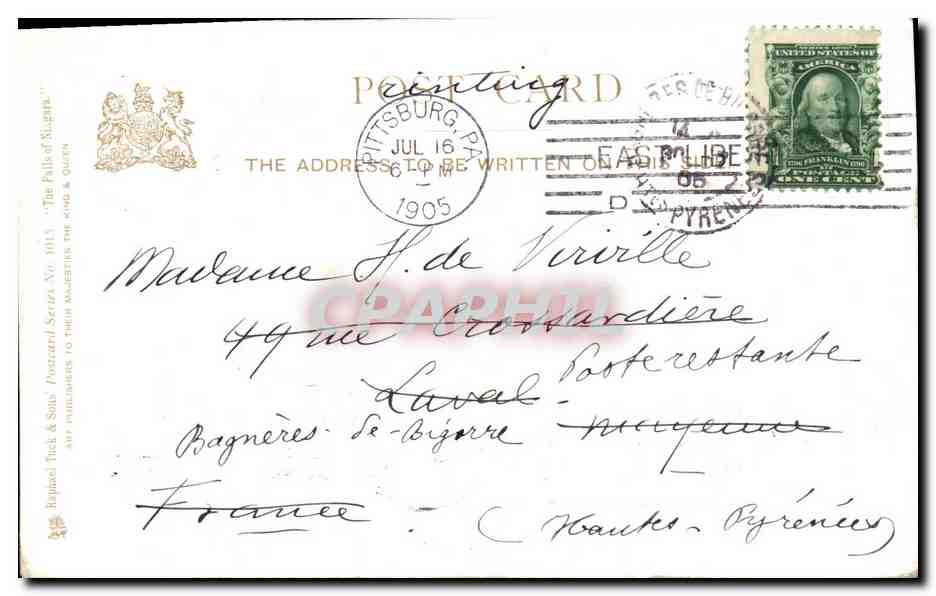 POST CARD
rinting
PITTSBURG, PA.
JUL 16
6 - PM
1905
THE ADDRESS TO BE WRITTEN ON THIS SIDE
EAST LIBERTY
D
14
05
PYRENEES
UNITED STATES OF
AMERICA
1706 FRANKLIN 1790
POSTAGE
ONE CENT
Raphael Tuck & Sons' Postcard Series No. 1015 "The Falls of Niagara."
ART PUBLISHERS TO THEIR MAJESTIES THE KING & QUEEN
Madame H. de Virville
49 rue Crossardière
Laval Poste restante
Bagnères-de-Bigorre Mayenne
France - (Hautes-Pyrénées)
CPAPHIL